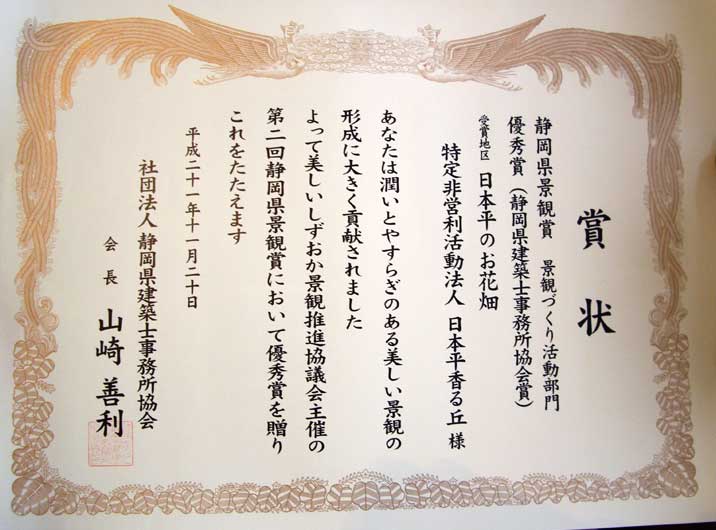 賞状
静岡県景観賞 景観づくり活動部門
優秀賞(静岡県建築士事務所協会賞)
受賞地区 日本平のお花畑
特定非営利活動法人 日本平香る丘 様
あなたは潤いとやすらぎのある美しい景観の
形成に大きく貢献されました
よって美しいしずおか景観推進協議会主催の
第二回静岡県景観賞において優秀賞を贈り
これをたたえます
平成二十一年十一月二十日
社団法人 静岡県建築士事務所協会
会長 山崎善利